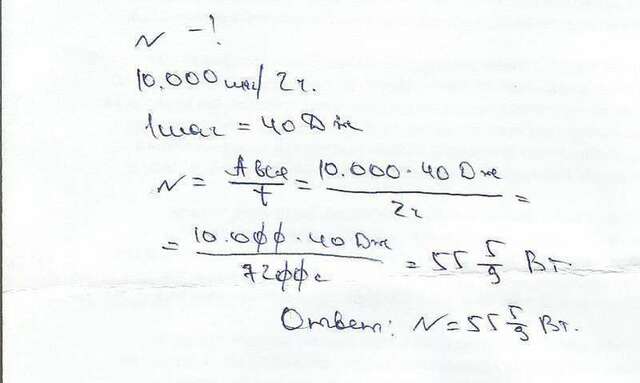 N -!
10.000 шаг/2ч.
1шаг = 40 Дж
N = Aвсе/t = 10.000 · 40 Дж/2ч =
= 10.000 · 40 Дж/7200с = 55 5/9 Вт.
Ответ: N = 55 5/9 Вт.